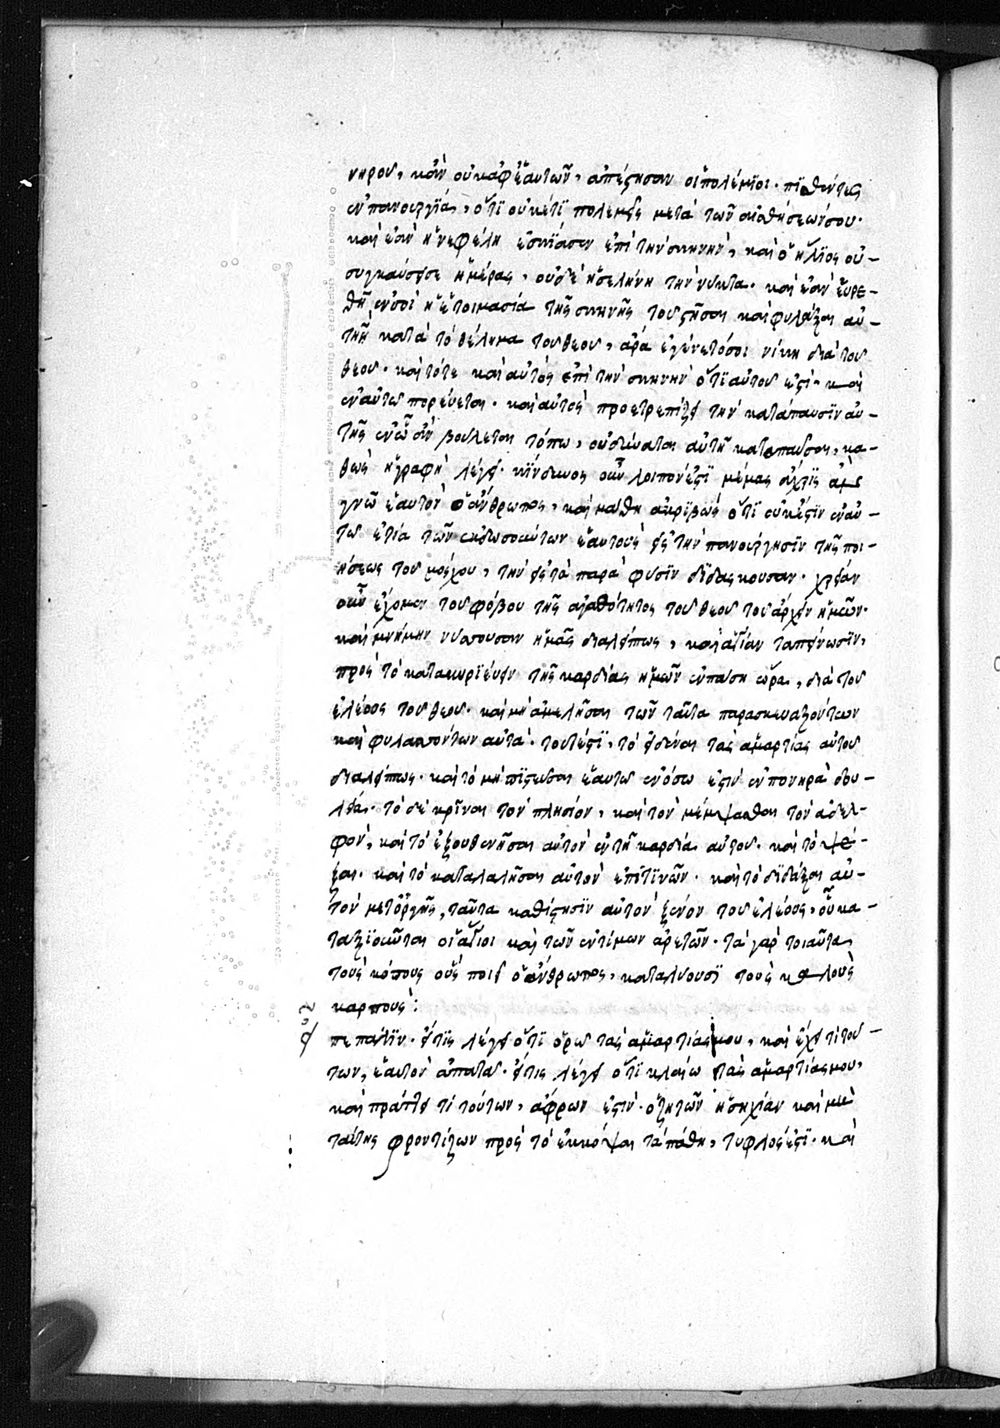 νηρου, κἂν οὐκ ἀφ ἑαυτῶν, ἀπέστησαν οἱ πολέμιοι. πϊθέντες
ἐν πανουργίᾳ, ὅτϊ οὐκέτϊ πολεμεῖς μετὰ τῶν αἰσθήσεών σου.
καὶ ἐὰν ἡ νεφέλη ἐσκίασεν ἐπὶ τὴν σκηνὴν, καὶ ὁ ἥλϊος οὐ-
συγκαύσῃσε ἡμέρας, οὐδὲ ἡ σελήνη τὴν νύκτα. καὶ ἐὰν εὑρε-
θῇ ἐν σοὶ ἡ ἑτοιμασία τῆς σκηνῆς τοῦ στῆσαι καὶ φυλάξαι αὐ-
τὴν κατὰ τὸ θέλημα τοῦ θεοῦ, ἆρα ἐγένετό σοι νίκη διὰ τοῦ
θεοῦ. καὶ τότε καὶ αὐτὸς ἐπὶ τὴν σκηνὴν ὅτϊ αὐτοῦ ἐστὶ. καὶ
ἐν αὐτῷ πορεύεται. καὶ αὐτὸς προετρεπίζει τὴν κατάπαυσϊν αὐ-
τῆς ἐν ᾧ ἂν βούλεται τόπῳ, οὐ δύναται αὐτὴ καταπαῦσαι, κα-
θὼς ἡ γραφὴ λέγει. κίνδυνος οὖν λοιπὸν ἐστϊ μέγας ἄχρϊς
γνῷ ἑαυτὸν ὁ ἄνθρωπος, καὶ μάθῃ ἀκριβῶς ὅτϊ οὐκ ἔστϊν ἐν αὐ-
τῷ ἔτϊ τῶν ἐκδωσσάντων ἑαυτοὺς εἰς τὴν πανούργησϊν τῆς ποι-
ήσεως τοῦ μόσχου, τὴν εἰς τὰ παρὰ φύσϊν διδάσκουσαν. χρείαν
οὖν ἔχομεν τοῦ φόβου τῆς ἀγαθότητος τοῦ θεοῦ τοῦ ἄρχειν ἡμῶν.
καὶ μνήμην νύσσουσαν ἡμᾶς διαλείπως, καὶ ἁγίαν ταπείνωσϊν,
πρὸς τὸ κατακυριεύειν τῆς καρδίας ἡμῶν ἐν πάσῃ ὥρᾳ, διὰ τοῦ
ἐλέους τοῦ θεοῦ. καὶ μὴ ἀμελῆσαι τῶν ταῦτα παρασκευαζόντων
καὶ φυλαττόντων αὐτὰ. τουτέστϊ, τὸ εἰδέναι τὰς ἁμαρτίας αὐτοῦ
διαλείπως. καὶ τὸ μὴ πϊστεῦσαι ἑαυτῷ ἐν ὅσῳ ἐστὶν ἐν πονηρᾷ δου-
λείᾳ. τὸ δὲ κρῖναι τὸν πλησίον, καὶ τὸν μέμψασθαι τὸν ἀδελ-
φὸν, καὶ τὸ ἐξουθενῆσαι αὐτὸν ἐν τῇ καρδίᾳ αὐτοῦ. καὶ τὸ ψέ-
ξαι. καὶ τὸ καταλαλῆσαι αὐτὸν ἐπὶ τϊνῶν. καὶ τὸ διδάξαι αὐ-
τὸν μετ ὀργῆς, ταῦτα καθίστησϊν αὐτὸν ξένον τοῦ ἐλέους, οὗ κα-
ταξϊοῦνται οἱ ἅγιοι καὶ τῶν ἐντίμων ἀρετῶν. τὰ γὰρ τοιαῦτα
τοὺς κόπους οὓς ποιεῖ ὁ ἄνθρωπος, καταλύουσϊ τοὺς καλοὺς
καρπούς:
πε πάλϊν. εἴ τϊς λέγει ὅτϊ ὁρῶ τὰς ἁμαρτίας μου, καὶ ἔχει τὶ τού-
των, ἑαυτὸν ἀπατᾷ. εἴ τις λέγει ὅτϊ κλαίω τὰς ἁμαρτίας μου,
καὶ πράττει τὶ τούτων, ἄφρων ἐστὶν. ὁ ζητῶν ἡσυχίαν καὶ μὴ
ταύτης φροντίζων πρὸς τὸ ἐκκόψαι τὰ πάθη, τυφλός ἐστϊ. καὶ